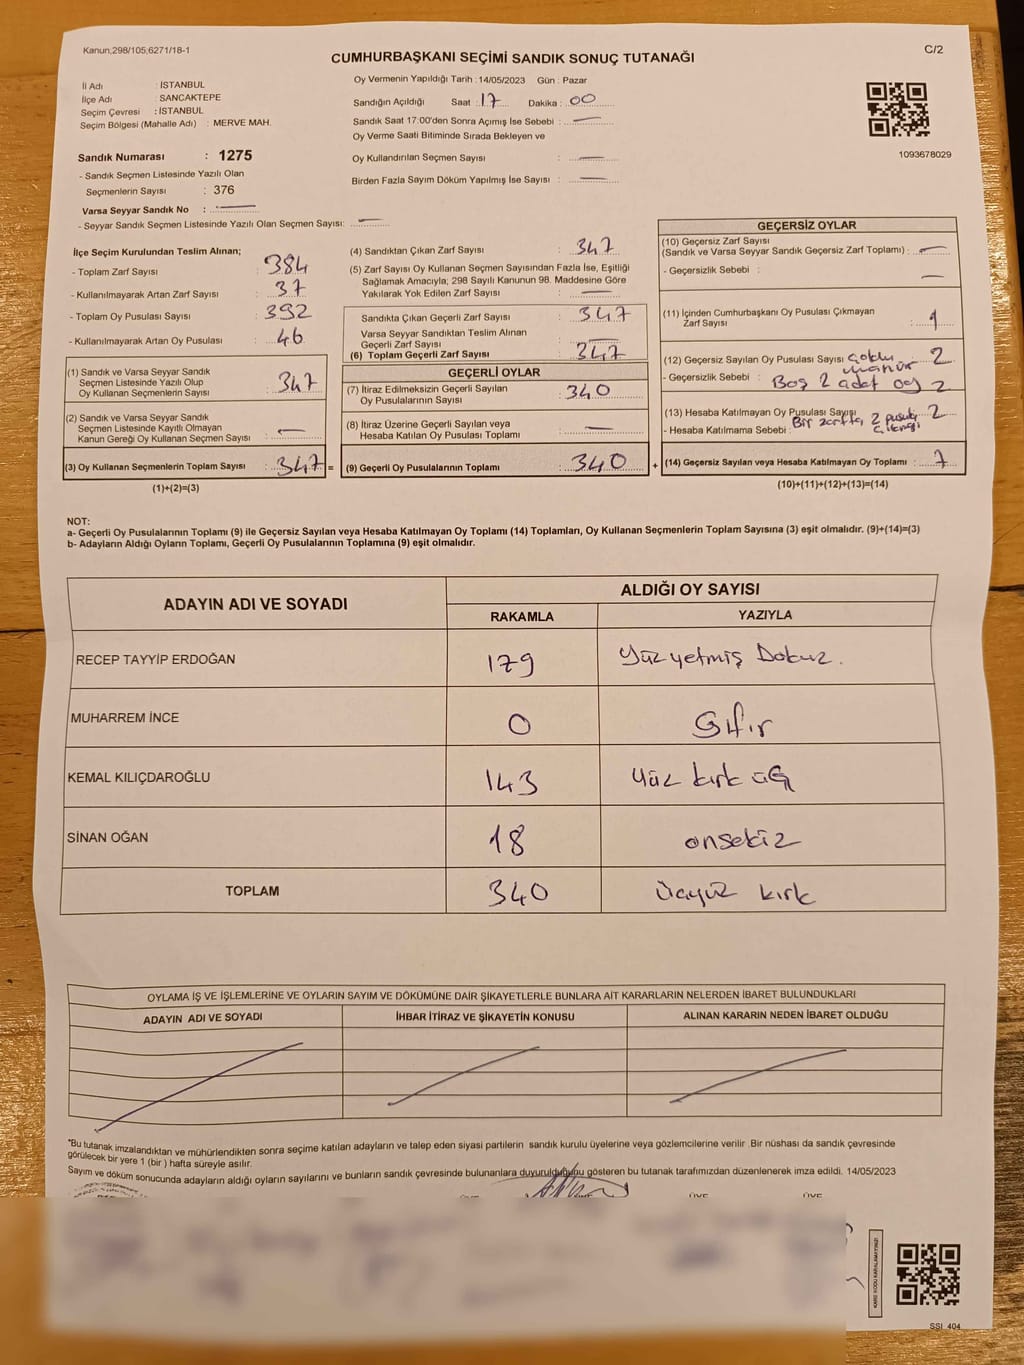 Kanun;298/105;6271/18-1
C/2
CUMHURBAŞKANI SEÇİMİ SANDIK SONUÇ TUTANAĞI
İl Adı : İSTANBUL
İlçe Adı : SANCAKTEPE
Seçim Çevresi : İSTANBUL
Seçim Bölgesi (Mahalle Adı) : MERVE MAH.
Oy Vermenin Yapıldığı Tarih : 14/05/2023 Gün : Pazar
Sandığın Açıldığı Saat : 17 Dakika : 00
Sandık Saat 17:00'den Sonra Açımış İse Sebebi : —
Oy Verme Saati Bitiminde Sırada Bekleyen ve
Oy Kullandırılan Seçmen Sayısı : —
Birden Fazla Sayım Döküm Yapılmış İse Sayısı : —
1093678029
Sandık Numarası : 1275
- Sandık Seçmen Listesinde Yazılı Olan
Seçmenlerin Sayısı : 376
Varsa Seyyar Sandık No : —
- Seyyar Sandık Seçmen Listesinde Yazılı Olan Seçmen Sayısı: —
İlçe Seçim Kurulundan Teslim Alınan;
- Toplam Zarf Sayısı : 384
- Kullanılmayarak Artan Zarf Sayısı : 37
- Toplam Oy Pusulası Sayısı : 392
- Kullanılmayarak Artan Oy Pusulası : 46
(1) Sandık ve Varsa Seyyar Sandık
Seçmen Listesinde Yazılı Olup
Oy Kullanan Seçmenlerin Sayısı : 347
(2) Sandık ve Varsa Seyyar Sandık
Seçmen Listesinde Kayıtlı Olmayan
Kanun Gereği Oy Kullanan Seçmen Sayısı : —
(3) Oy Kullanan Seçmenlerin Toplam Sayısı : 347 =
(1)+(2)=(3)
(4) Sandıktan Çıkan Zarf Sayısı : 347
(5) Zarf Sayısı Oy Kullanan Seçmen Sayısından Fazla İse, Eşitliği
Sağlamak Amacıyla; 298 Sayılı Kanunun 98. Maddesine Göre
Yakılarak Yok Edilen Zarf Sayısı : —
Sandıkta Çıkan Geçerli Zarf Sayısı : 347
Varsa Seyyar Sandıktan Teslim Alınan
Geçerli Zarf Sayısı : —
(6) Toplam Geçerli Zarf Sayısı : 347
GEÇERLİ OYLAR
(7) İtiraz Edilmeksizin Geçerli Sayılan
Oy Pusulalarının Sayısı : 340
(8) İtiraz Üzerine Geçerli Sayılan veya
Hesaba Katılan Oy Pusulası Toplamı : —
(9) Geçerli Oy Pusulalarının Toplamı : 340 +
GEÇERSİZ OYLAR
(10) Geçersiz Zarf Sayısı
(Sandık ve Varsa Seyyar Sandık Geçersiz Zarf Toplamı) : —
- Geçersizlik Sebebi : —
(11) İçinden Cumhurbaşkanı Oy Pusulası Çıkmayan
Zarf Sayısı : 1
(12) Geçersiz Sayılan Oy Pusulası Sayısı 2
- Geçersizlik Sebebi : Boş 2 adet oy 2
(13) Hesaba Katılmayan Oy Pusulası Sayısı 2
- Hesaba Katılmama Sebebi : Bir zarfta 2 pusula
(14) Geçersiz Sayılan veya Hesaba Katılmayan Oy Toplamı : 7
(10)+(11)+(12)+(13)=(14)
NOT:
a- Geçerli Oy Pusulalarının Toplamı (9) ile Geçersiz Sayılan veya Hesaba Katılmayan Oy Toplamı (14) Toplamları, Oy Kullanan Seçmenlerin Toplam Sayısına (3) eşit olmalıdır. (9)+(14)=(3)
b- Adayların Aldığı Oyların Toplamı, Geçerli Oy Pusulalarının Toplamına (9) eşit olmalıdır.
ADAYIN ADI VE SOYADI ALDIĞI OY SAYISI
RAKAMLA YAZIYLA
RECEP TAYYİP ERDOĞAN 179 Yüz yetmiş Dokuz.
MUHARREM İNCE 0 Sıfır
KEMAL KILIÇDAROĞLU 143 Yüz kırk üç
SİNAN OĞAN 18 onsekiz
TOPLAM 340 üçyüz kırk
OYLAMA İŞ VE İŞLEMLERİNE VE OYLARIN SAYIM VE DÖKÜMÜNE DAİR ŞİKAYETLERLE BUNLARA AİT KARARLARIN NELERDEN İBARET BULUNDUKLARI
ADAYIN ADI VE SOYADI İHBAR İTİRAZ VE ŞİKAYETİN KONUSU ALINAN KARARIN NEDEN İBARET OLDUĞU
*Bu tutanak imzalandıktan ve mühürlendikten sonra seçime katılan adayların ve talep eden siyasi partilerin sandık kurulu üyelerine veya gözlemcilerine verilir .Bir nüshası da sandık çevresinde
görülecek bir yere 1 (bir ) hafta süreyle asılır.
Sayım ve döküm sonucunda adayların aldığı oyların sayılarını ve bunların sandık çevresinde bulunanlara duyurulduğunu gösteren bu tutanak tarafımızdan düzenlenerek imza edildi. 14/05/2023
ÜYE ÜYE
KARE KODU KARALAMAYINIZ!
SSI_404